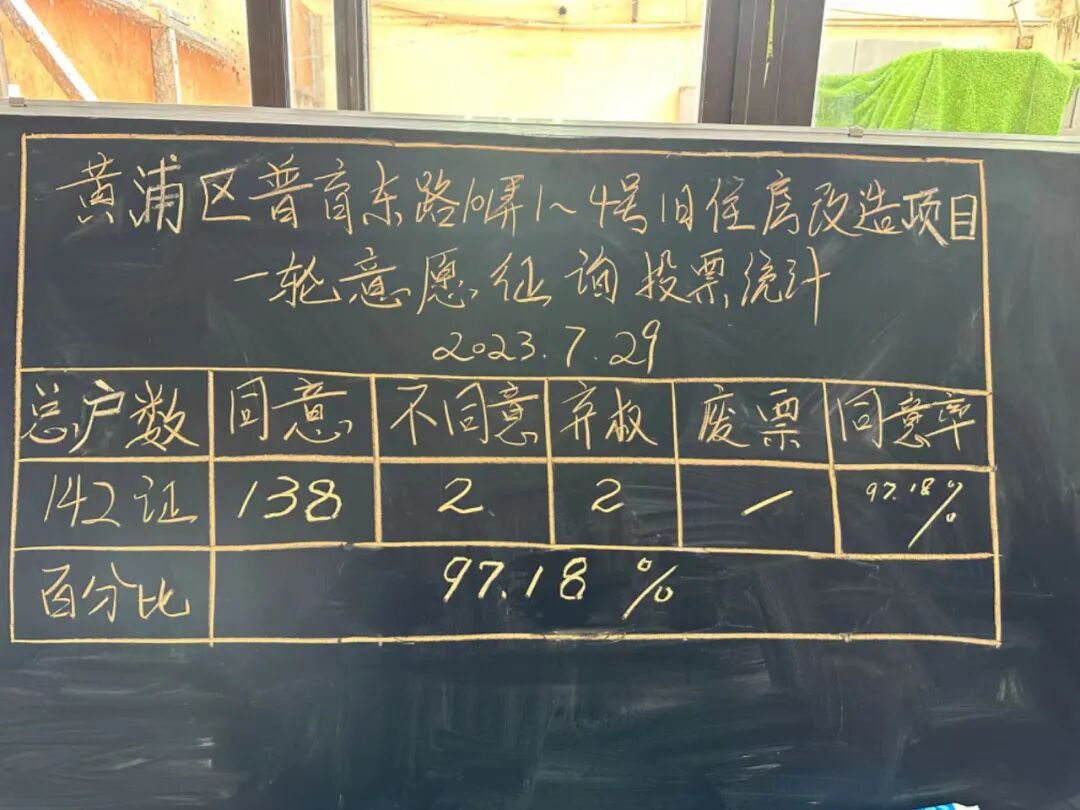 黄浦区普育东路10弄1~4号旧住房改造项目
一轮意愿征询投票统计
2023.7.29
总户数 同意 不同意 弃权 废票 同意率
142证 138 2 2 / 97.18%
百分比 97.18%